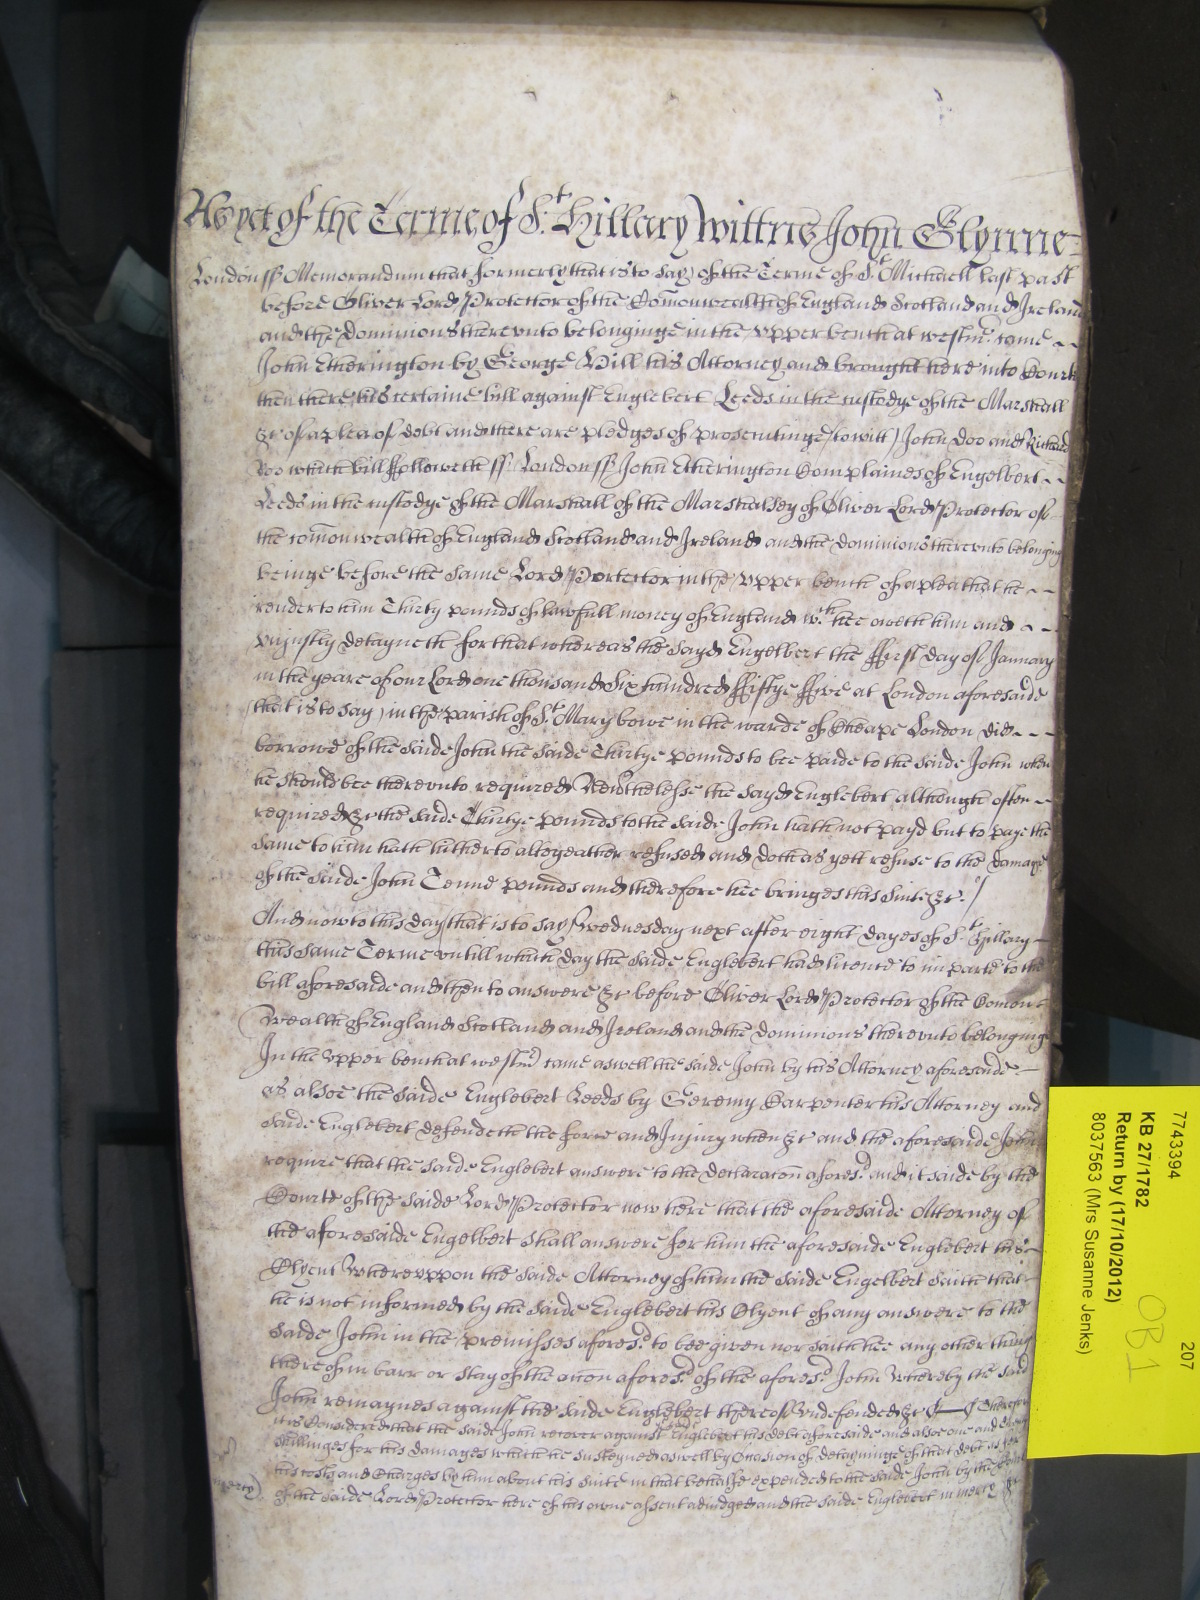 As yet of the Terme of St. Hillary Wittnes John Glynne
London ss Memorandum that formerly that is to say of the Terme of St. Michaell last past
before Oliver Lord Protector of the Comonwealth of England Scotland and Ireland
and the Dominions therevnto belonginge in the vpper bench at westmr. came
John Etherington by George Hill his Attorney and brought here into Court
then there his certaine bill against Englebert Leeds in the custodye of the Marshall
&c of a plea of debt and there are pledges of prosecutinge (to witt) John Doo and Richard
Roo which bill ffolloweth ss London ss John Etherington Complaines of Engelbert
Leeds in the custodye of the Marshall of the Marshallsey of Oliver Lord Protector of
the comonwealth of England Scotland and Ireland and the dominions therevnto belonging
beinge before the same Lord Protector in the vpper bench of a plea that he
render to him Thirty pounds of lawfull money of England wch. hee oweth him and
vniustly detayneth for that whereas the sayd Engelbert the ffirst day of January
in the yeare of our Lord one thousand Six hundred ffiftye ffive at London aforesaide
(that is to say) in the parish of St. Mary bowe in the warde of Cheape London did
borrowe of the saide John the saide Thirtye pounds to bee paide to the saide John when
he should bee therevnto required Neverthelesse the sayd Englebert although often
required &c the saide Thirtye pounds to the saide John hath not payd but to paye the
same to him hath hitherto altogeather refused and doth as yett refuse to the damage
of the saide John Tenne pounds and therefore hee bringes his suite &c.
And now to this day that is to say Wednesday next after eight dayes of St. Hillary
this same Terme vntill which day the saide Englebert had licence to imparle to the
bill aforesaide and then to answere &c before Oliver Lord Protector of the Comon
Wealth of England Scotland and Ireland and the dominions therevnto belonging
In the vpper bench at westmr. came aswell the saide John by his Attorney aforesaide
as alsoe the saide Englebert Leeds by Geremy Carpenter his Attorney and
saide Englebert defendeth the force and Iniury when &c and the aforesaide John
require that the saide Englebert answere to the declaracon aforesd. and it saide by the
Courte of the saide Lord Protector now here that the aforesaide Attorney of
the aforesaide Engelbert shall answere for him the aforesaide Englebert his
Clyent Wherevppon the saide Attorney of him the saide Engelbert saith that
he is not informed by the saide Englebert his Clyent of any answere to the
saide John in the premisses aforesd. to bee given nor saith hee any other thing
thereof in barr or stay of the accon aforesd. of the aforesd. John Whereby the said
John remaynes against the saide Englebert thereof Vndefended &c Therefore
it is Considered that the saide John recover against Englebert his debt aforesaide and alsoe one and
shillinges for his damages which he susteyned aswell by Occasion of detayninge of that debt as for
his costs and Charges by him about his suite in that behalfe expended to the saide John by the Court
mercy)
of the saide Lord Protector here of his owne assent adiudged and the saide Englebert in mercy &c
7743394 207
KB 27/1782
Return by (17/10/2012)
8037563 (Mrs Susanne Jenks)
OB1